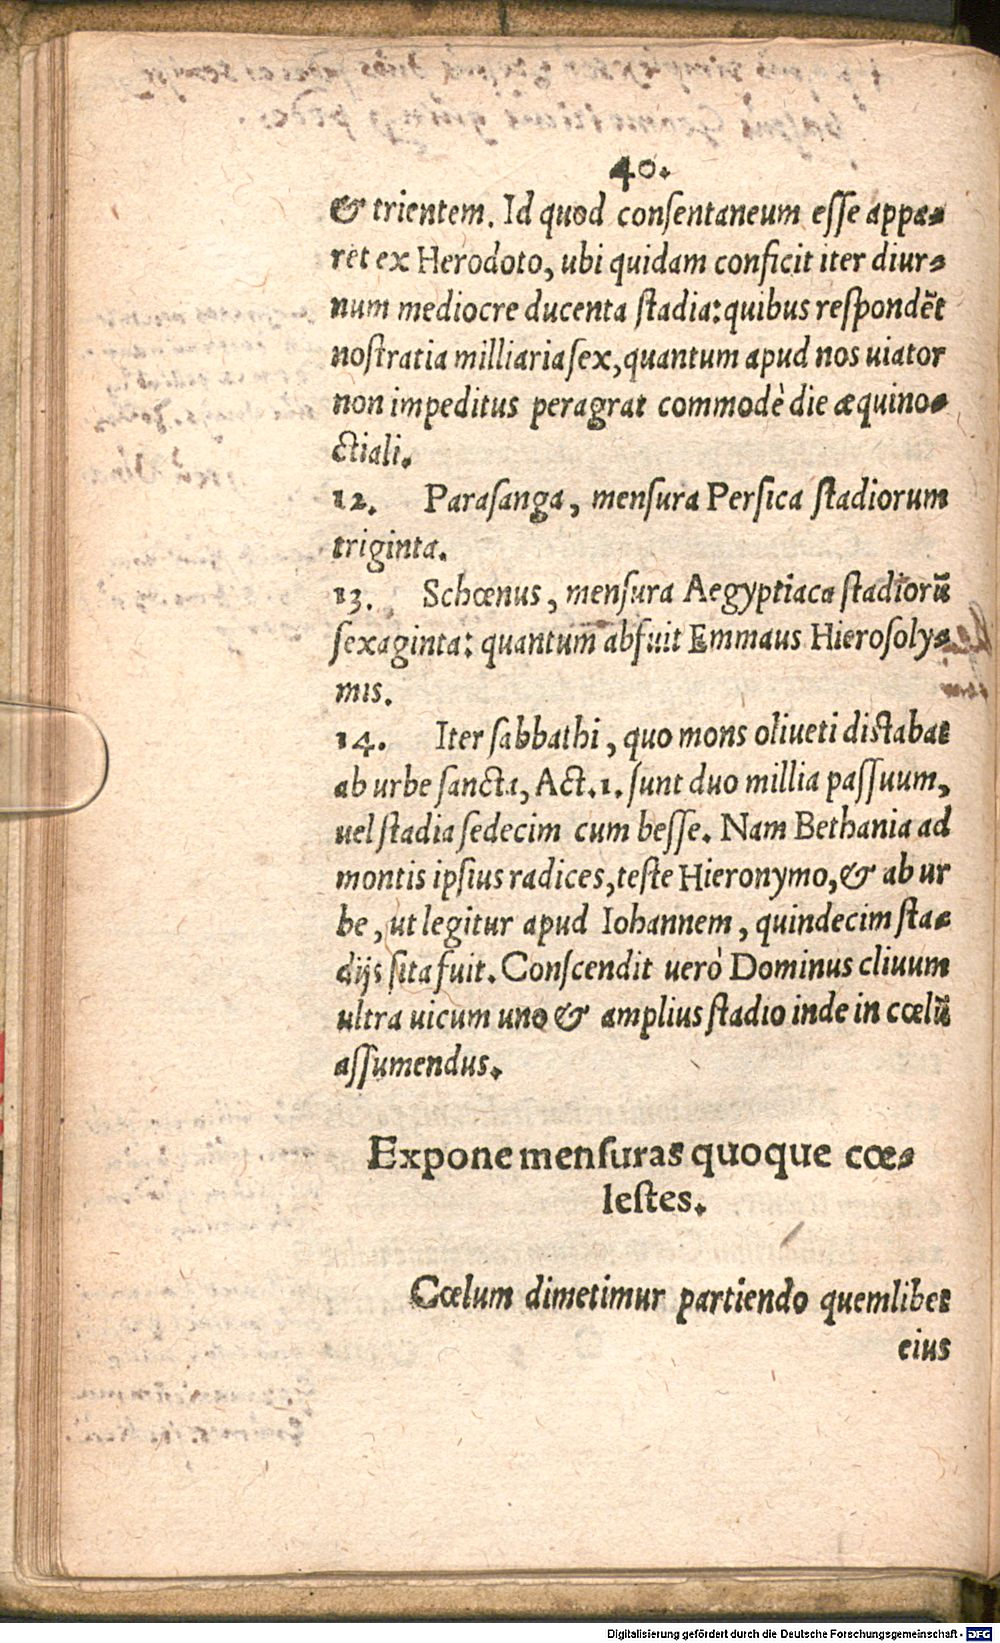 40.
& trientem. Id quod conſentaneum eſſe appa-
ret ex Herodoto, ubi quidam conficit iter diur-
num mediocre ducenta ſtadia: quibus reſpondēt
noſtratia milliaria ſex, quantum apud nos uiator
non impeditus peragrat commodè die æquino-
ctiali.
12. Paraſanga, menſura Perſica ſtadiorum
triginta.
13. Schœnus, menſura Aegyptiaca ſtadiorū
ſexaginta: quantum abfuit Emmaus Hieroſoly-
mis.
14. Iter ſabbathi, quo mons oliueti diſtabat
ab urbe ſancta, Act. 1. ſunt duo millia paſſuum,
uel ſtadia ſedecim cum beſſe. Nam Bethania ad
montis ipſius radices, teſte Hieronymo, & ab ur
be, ut legitur apud Iohannem, quindecim ſta-
dijs ſita fuit. Conſcendit uerò Dominus cliuum
ultra uicum uno & amplius ſtadio inde in cœlū
aſſumendus.
Expone menſuras quoque cœ-
leſtes.
Cœlum dimetimur partiendo quemlibet
eius
Digitalisierung gefördert durch die Deutsche Forschungsgemeinschaft - DFG